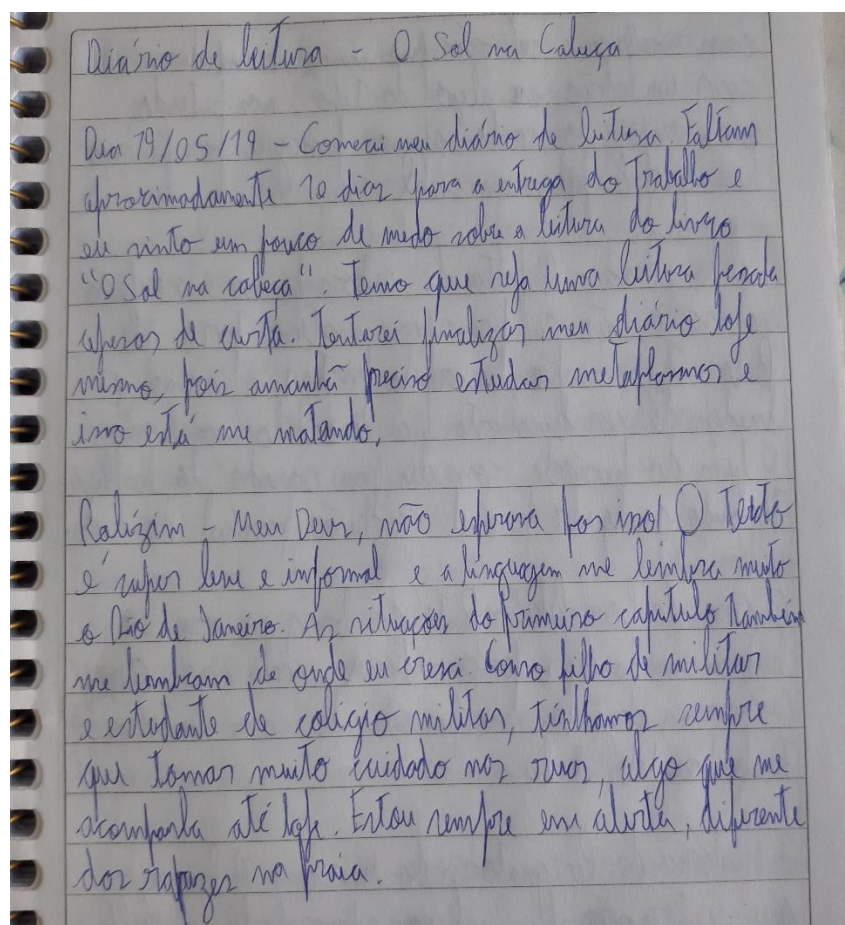 Diário de leitura - O Sol na Cabeça
Dia 19/05/19 - Comecei meu diário de leitura. Faltam
aproximadamente 10 dias para a entrega do Trabalho e
eu sinto um pouco de medo sobre a leitura do livro
"O Sol na cabeça". Temo que seja uma leitura pesada
apesar de curta. Tentarei finalizar meu diário hoje
mesmo, pois amanhã preciso estudar metaplasmos e
isso está me matando.
Rolézim - Meu Deus, não esperava por isso! O Texto
é super leve e informal e a linguagem me lembra muito
o Rio de Janeiro. As situações do primeiro capítulo Também
me lembram de onde eu cresci. Como filho de militar
e estudante de colégio militar, tínhamos sempre
que tomar muito cuidado nas ruas, algo que me
acompanha até hoje. Estou sempre em alerta, diferente
dos rapazes na praia.